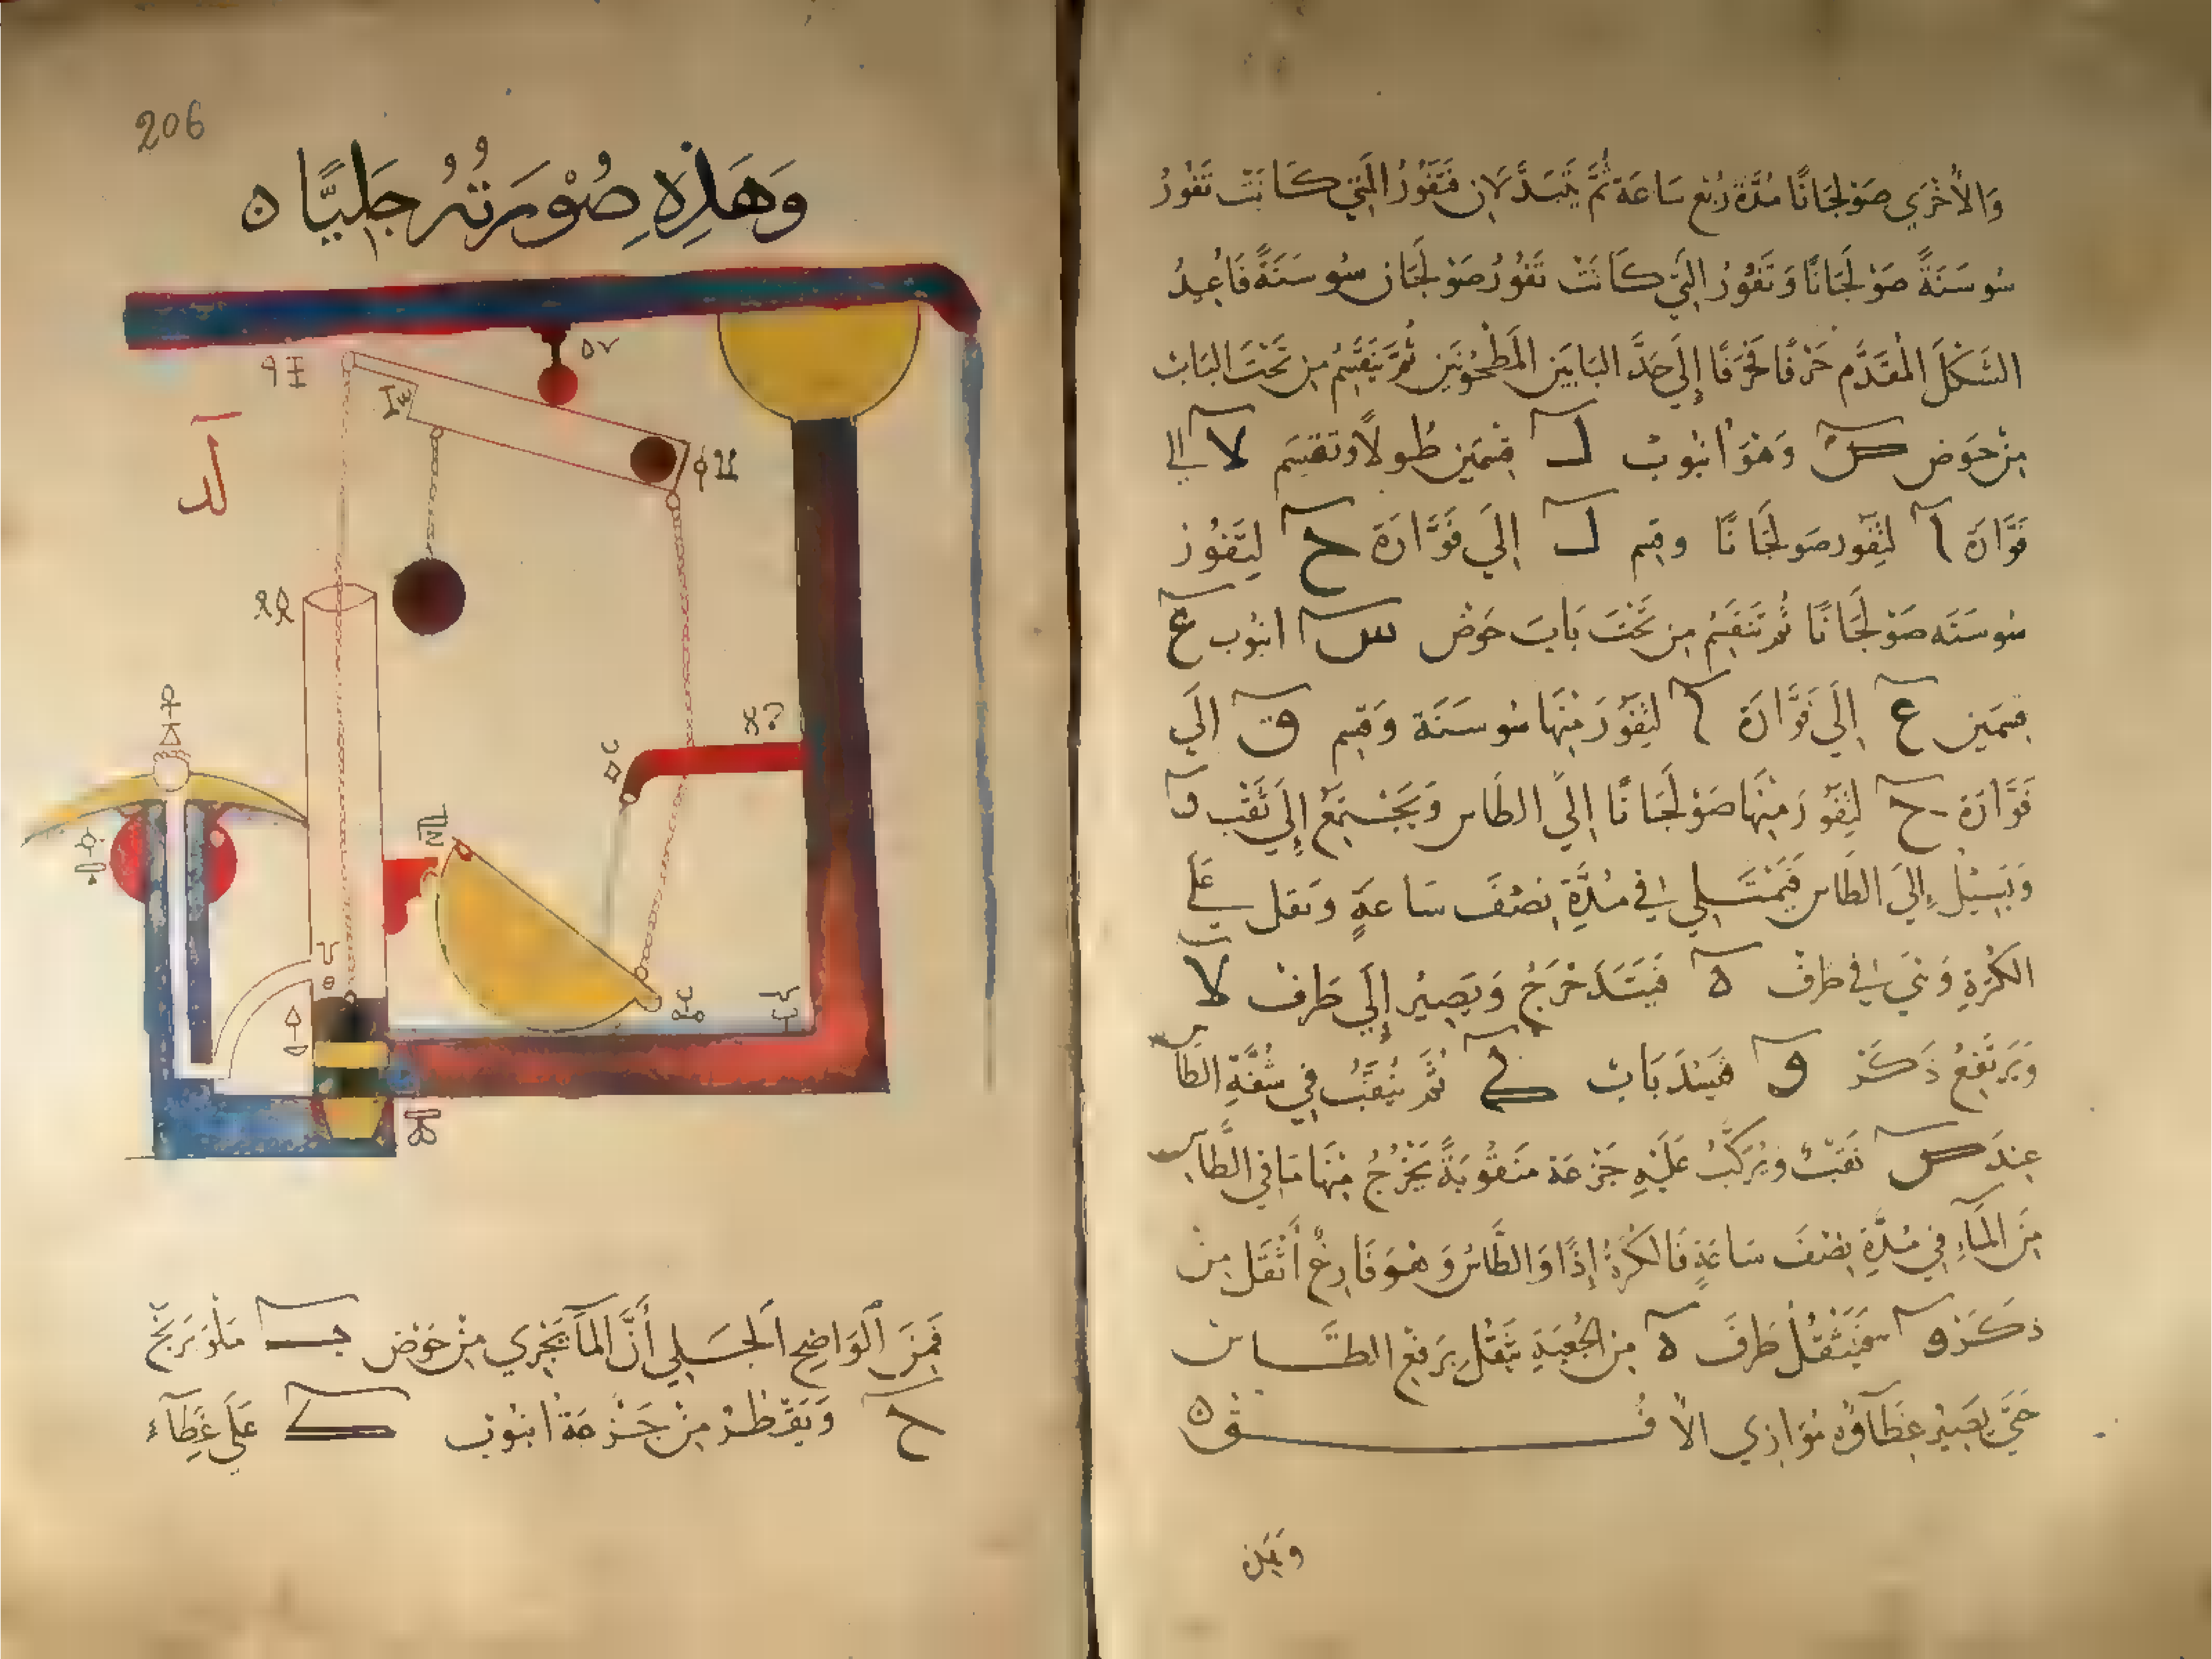 وَالأُخْرَي صَوْلَجَانًا مُدَّةَ رُبْعِ سَاعَة ثُمَّ يَتَبَدَّلَانِ فَتَفُورُ الَّتِي كَانَتْ تَفُورُ
سُوسَنَةً صَوْلَجَانًا وَتَفُورُ الَّتِي كَانَتْ تَفُورُ صَوْلَجَان سُوسَنَةً فَاُعِيدُ
الشَّكْلَ المُقَدَّم حَرْفًا فَحَرْفًا إِلَي حَدَّ البَابَيْنِ المَطْحُونَيْنِ ثُمَّ يَنْقَسِمُ مِنْ تَحْتَ البَابِ
مِنْ حَوْضِ وَهُوَ انبُوبُ ل قِسْمَيْنِ طُولاً وَتقسِمَ لا الي
فَوَّارَة ا لِيَفُور صَولَجَانًا وقِسم ل إِلَي فَوَّارَة ح لِيَفُوز
سُوسَنَه صَوْلَجَانًا ثُم تَنْقَسِمُ مِن تَحْتَ بَابِ حَوْض س انبُوب ع
قِسمَين ع إِلَي فَوَّارَة ا لِيَفُورَ مِنْهَا سُوسَنَة وَقِسم ق الَي
فَوَّارَة ح لِيَفُورَ مِنْهَا صَوْلَجَانًا اِلَي الطَاس وَيَجْتَمِعُ إِلَي ثَقْب
وَيَسِيْلُ إِلَي الطَاس فَيَمْتَلِي في مُدَّةِ نِصْفَ سَاعَةٍ وَثقل عَلَي
الكُرَةِ وَهِيَ في طرف ه فَيَتَدَحْرَجُ وَيَصِيْرُ إِلَي طَرفْ لا
وَيَرتَفِعُ ذَكَرُ و فَيَسُدَّ بَابَ ك ثُمَّ يُثقَبُ فِي شَفَةِ الطَا
عِندَ ثَقْبٌ وَيُرَكَّبُ عَلَيْهِ جَزْعَة مَثقُوبَةً يَخْرُجُ مِنْهَا مَا فِي الطَّاس
مِنَ المَآءِ فِي مُدَّةِ نِصْفَ سَاعَةٍ فَالكُرَةُ إِذًا وَالطَّاسُ وَهُوَ فَارِغْ أَثْقَل مِنْ
ذكَر و فَيَثْقُلُ طَرفَ ه مِن الجُعْبَةِ بِثِقْلِ يَرفعُ الطَّاس
حَتَّي يَصِيْرُ غِطَآؤُه مُوَازِي الأفُقِ ه
وَهَذِه
206
وَهَذِهِ صُوْرَتُهُ جَلِيًّا ه
لد
فَمِنَ الْوَاضِحِ الجَلِي أَنَّ المَآ يَجْرِي مِنْ حَوْض ب
ح وَيَقْطُرُ مِنْ جَزْعَة اُنبُوب ك عَلَي غِطَآءِ